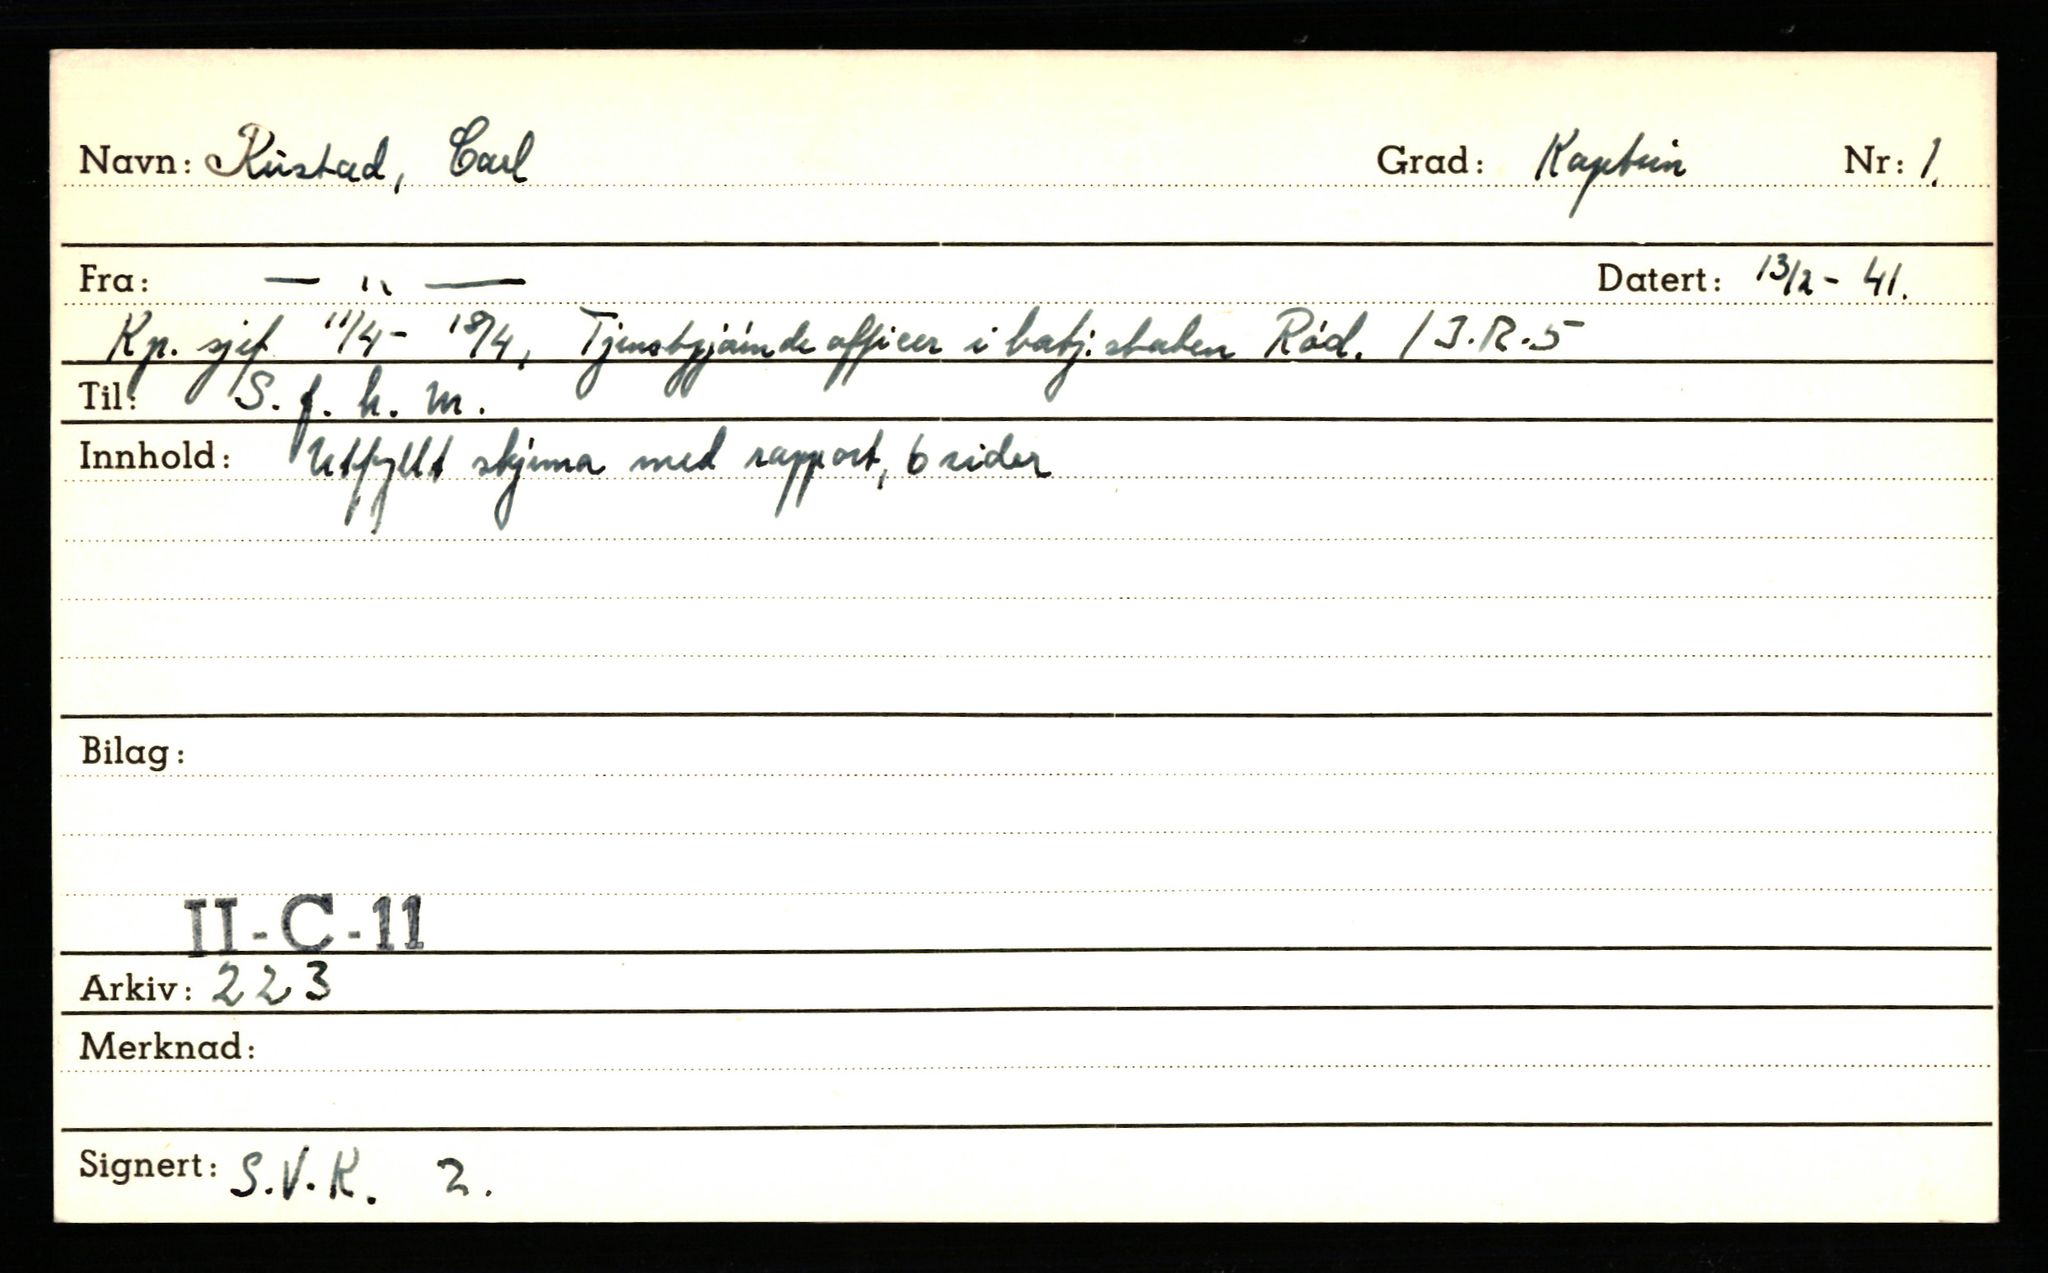 Navn: Rustad, Carl Grad: Kaptein Nr: 1.
Fra: — " — Datert: 13/2 - 41.
Kp. sjef 11/4 - 18/4, Tjenestgjørende officer i batj. staben Rød. / I.R.5
Til: S. f. h. m.
Innhold: Utfyllt skjema med rapport, 6 sider
Bilag:
II-C-11
Arkiv: 223
Merknad:
Signert: S.V.K. 2.